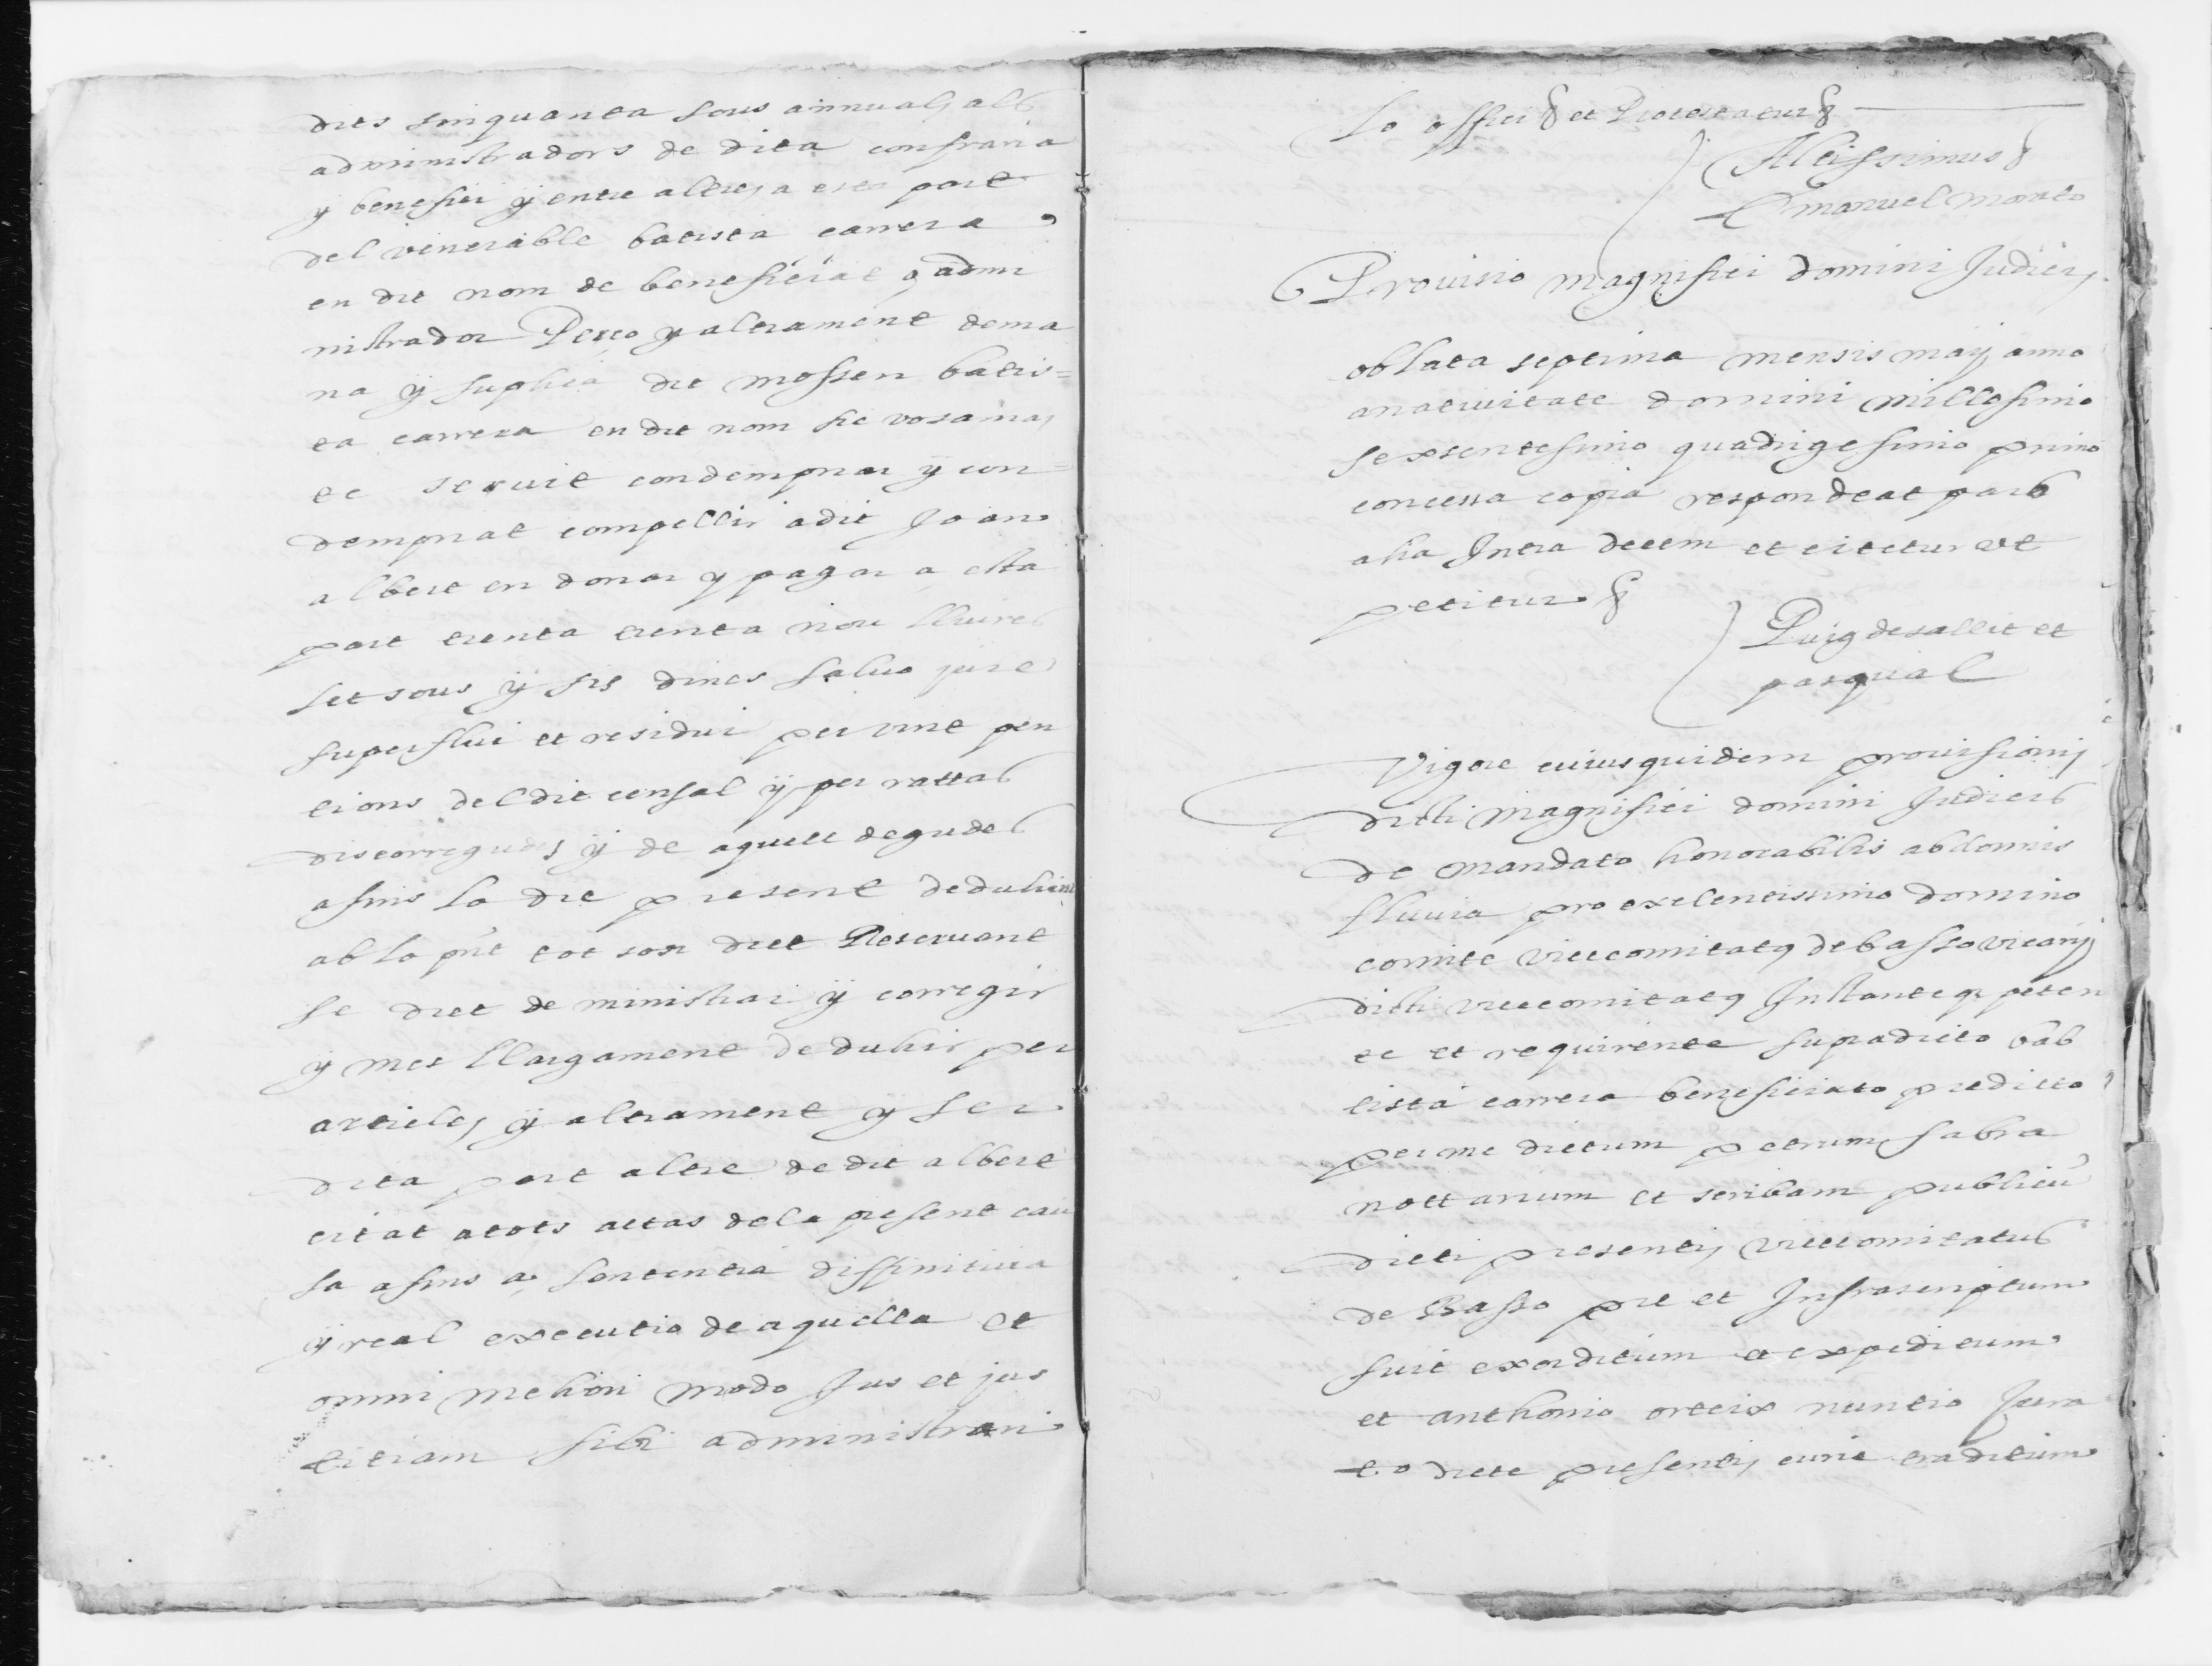 dits sinquanta sous annuals als
administradors de dita confraria
y benefici y entre altres a esta part
del venerable batista carrera
en dit nom de beneficiat y admi
nistrador Perço y altrament dema
na y suplica dit mossen batis=
ta carrera en dit nom sie vosa mag
te servit condempnar y con=
dempnat compellir a dit Joan
albert en donar y pagar a esta
part trenta trenta nou lliures
set sous y sis dines salvo jure
superflui et residui per vint pen
tions del dit censal y per rattas
discorregudes y de aquell degudes
a fins lo die present deduhint
ab lo pnt tot son dret Reservant
se dret de ministrar y corregir
y mes llargament deduhir per
articles y altrament y ser
dita part altre de dit albert
citat a tots actas de la present cau
sa a fins a sententia diffinitiva
y real executio de aquella et
omni meliori modo Jus et jus
titiam sibi administrari
lo offici et Protestatur
Altissimus
Emanuel
Provisio magnifici domini Judicis
oblata septima mensis maij anno
a nativitate domini millesimo
sexsentesimo quadrigesimo primo
concessa copia respondeat pars
alia Intra decem et citetur ut
petitur
Puigdesallit et
pasqual
Vigore cuiusquidem provisionis
dicti magnifici domini Judicis
de mandato honorabilis abdonnis
fluvia pro exelentissimo domino
comite vicecomitatus de basso vicarij
dicti vicecomitatus Instanteqz peten
te et requirente supradicto bab
tista carrera beneficiato predicto
per me dictum petrum sabra
nottarium et scribam publicu
dicti presentis vicecomitatus
de Basso pre et Infrascriptum
fuit exorditum et expeditum
et anthonio ortrix nuntio Jura
to dicte presentis curie traditum